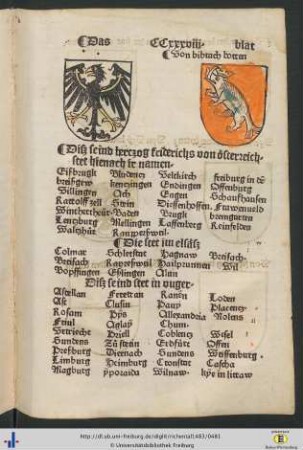 Das CCxxxviii blat
Von bibrach korrn
Diß seind hertzog friderichs von österreich
stet hienach ir namen
Eißbrugk Bludentz Veltkirch friburg in dē
breißgew kentzingen Endingen Offenburg
Villingen Ach Engen Schaufhausen
Rattolff zell Swin Diessenhoffen Frawenueld
Wintherthur Baden Brugk bremgarten
Lentzburg Mellingen Lauffenberg Reinfelden
Waltzhůt Ramperswil
Die stet im elsäß
Colmar Schletstat Hagnaw Breisach
Breisach Kayersperg Hailprunnen Wil
Bopffingen Eßlingen Alun
Diß seind stet in vnger
Ast Clusin Pauy Loden
Rosam Pys Alexandria Placentz
Friul Aglay Chum Nolens
Vtriecht Driell Coblentz Wesel
Gundens Zů stain Erdfürt Offen
Preßburg Diernach Gundens Weissenburg
Limburg Heimburg Cronstat Cascha
Magburg yppolaida Wilnaw kyw in littaw
http://dl.ub.uni-freiburg.de/diglit/richental1483/0483
© Universitätsbibliothek Freiburg